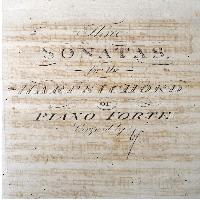 SONATAS
for the
HARPSICHORD
or
PIANO FORTE
Composed by